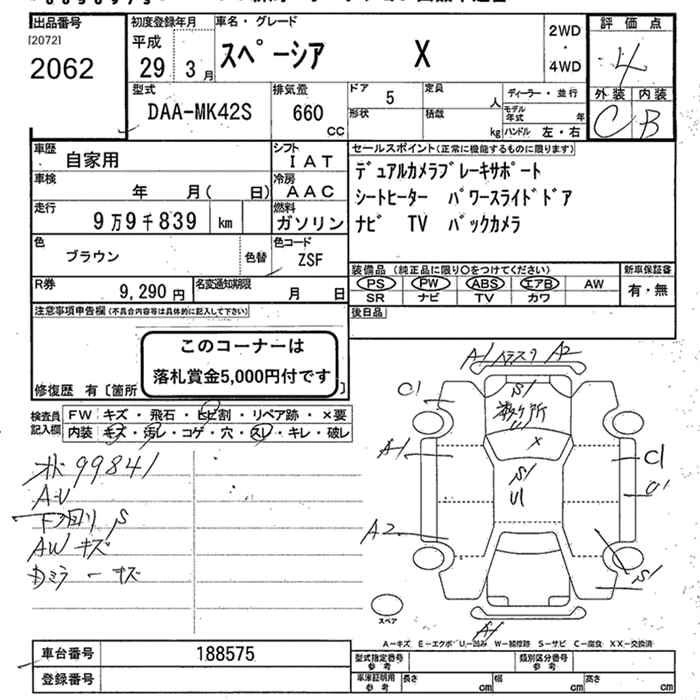 出品番号
[2072]
2062
初度登録年月
平成
29 3月
車名・グレード
スペーシア X
2WD
・
4WD
評価点
4
外装 内装
C B
型式
DAA-MK42S
排気量
660
CC
ドア 5
形状
定員 人
積載 kg
ディーラー・並行
モデル年式 年
ハンドル 左・右
車歴 自家用
シフト
IAT
車検 年 月( 日)
冷房
AAC
走行
9万9千839 km
燃料
ガソリン
色
ブラウン
色替
色コード
ZSF
R券
9,290円
名変通知期限
月 日
セールスポイント(正常に機能するものに限ります)
デュアルカメラブレーキサポート
シートヒーター パワースライドドア
ナビ TV バックカメラ
装備品 (純正品に限り○をつけてください)
PS PW ABS エアB AW
SR ナビ TV カワ
新車保証書
有・無
後日品
注意事項申告欄(不具合内容等は具体的に記入して下さい)
このコーナーは
落札賞金5,000円付です
修復歴 有〔箇所
検査員
記入欄
FW キズ・飛石・ヒビ割・リペア跡・×要
内装 キズ・汚レ・コゲ・穴・スレ・キレ・破レ
99841
A・U
下回り S
AW キズ
カメラ ー キズ
A1 A2
C1
S1
U1
×
A1
S1
U1
C1
U1
A2
S1
A1
スペア
A－キズ E－エクボ U－凹み W－補修跡 S－サビ C－腐食 XX－交換済
車台番号 188575
登録番号
型式指定番号
参考
類別区分番号
参考
車庫証明用
参考
長さ cm
幅 cm
高さ cm